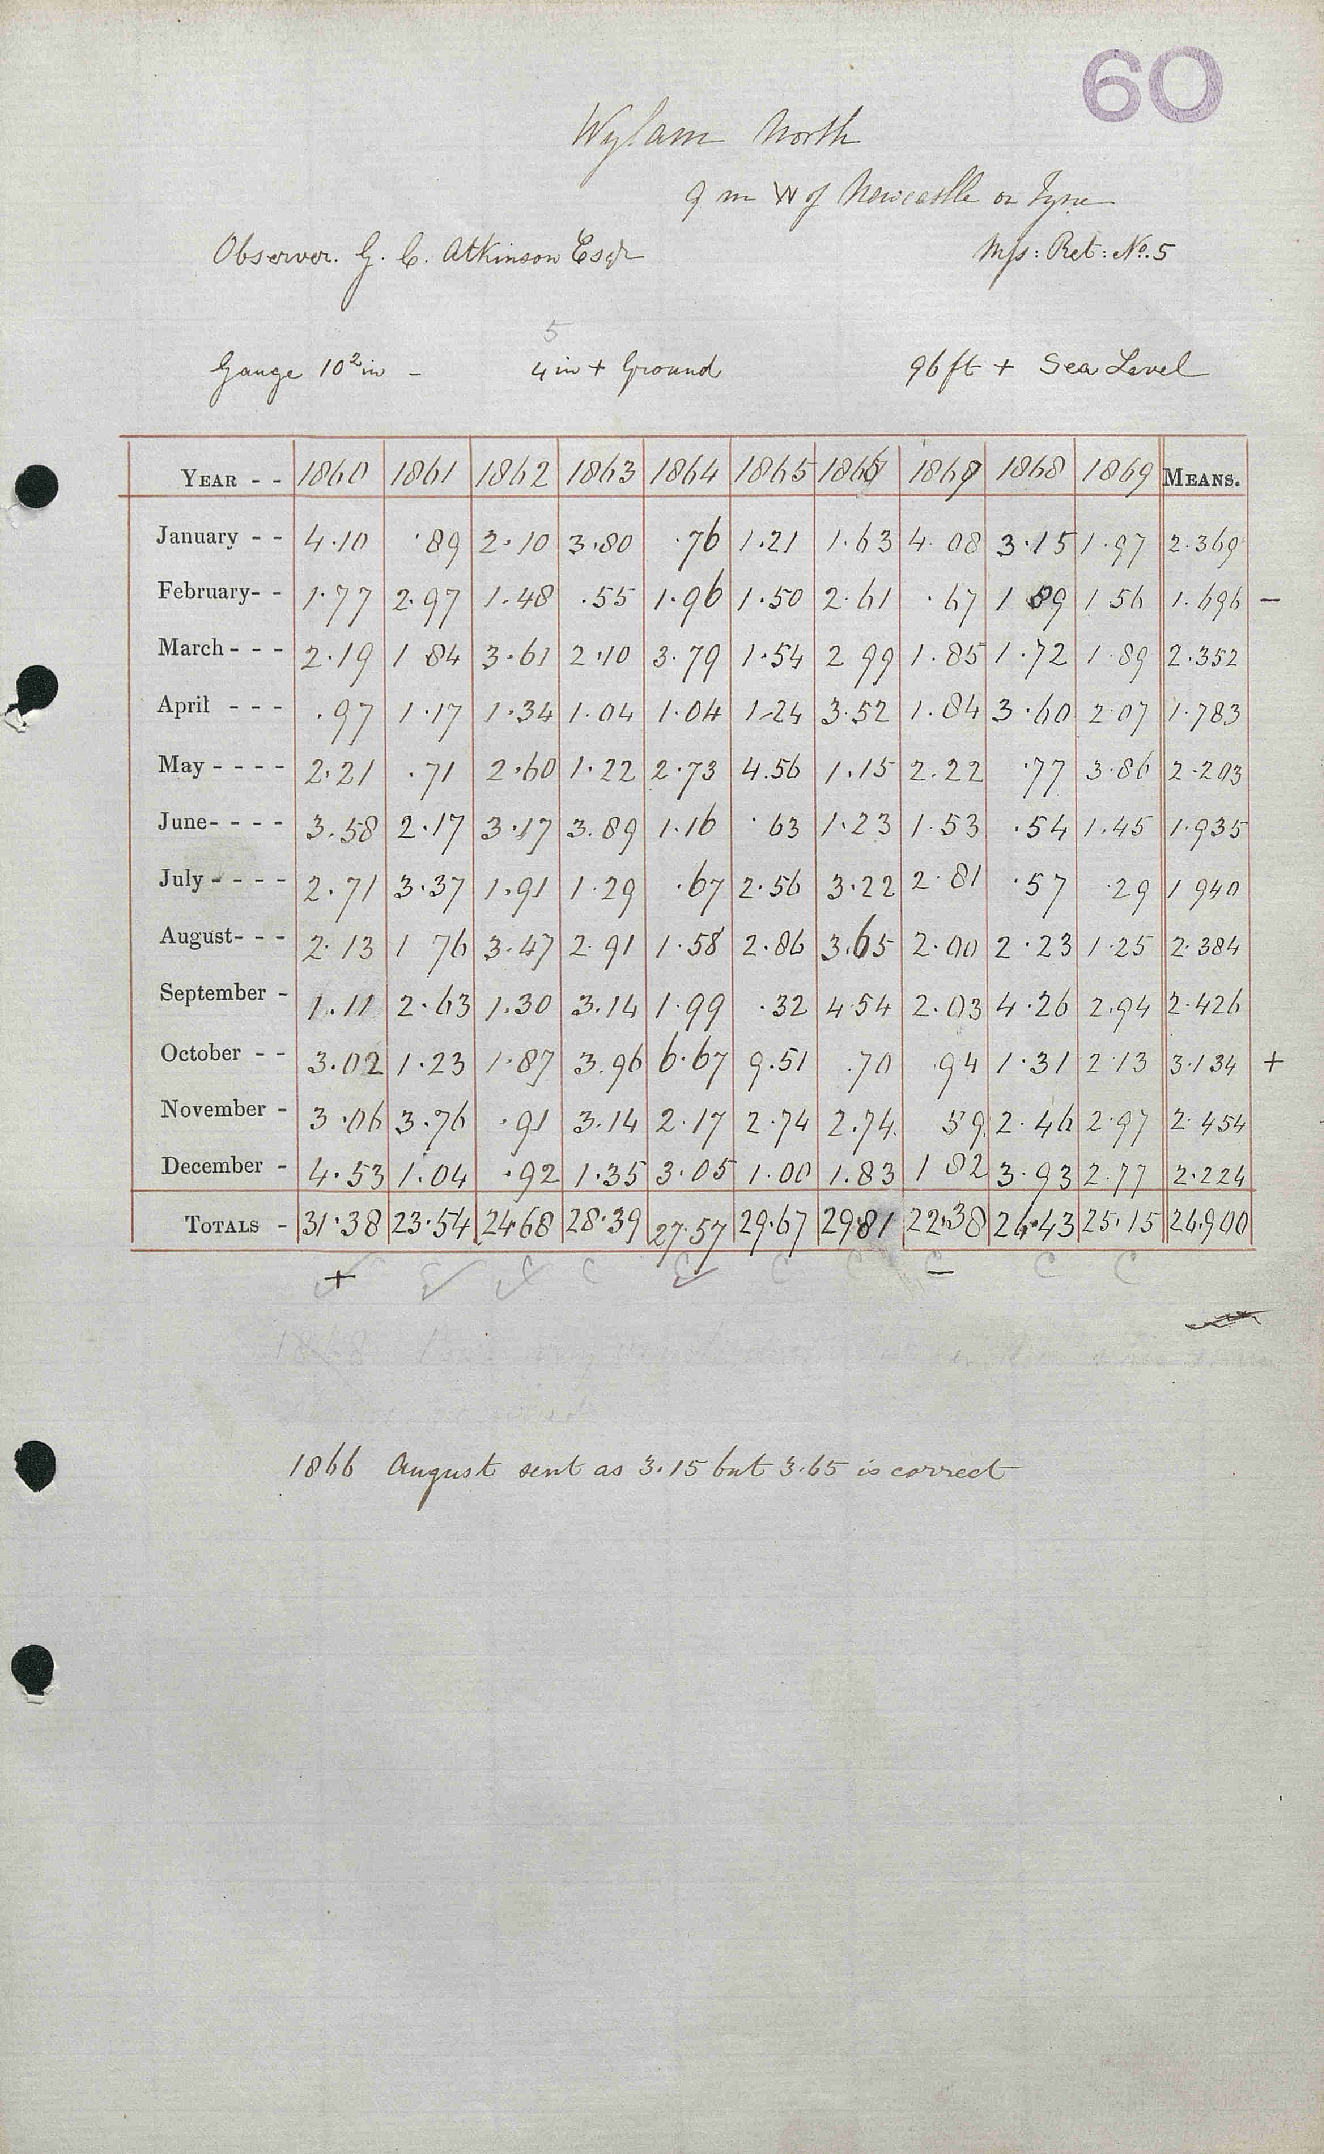 60
Wylam North
9 m W of Newcastle on Tyne
Observer. G. C. Atkinson Esqr Mss: Ret: No. 5
5
Gauge 10² in - 4 in + Ground 96 ft + Sea Level
YEAR - - 1860 1861 1862 1863 1864 1865 1866 1867 1868 1869 MEANS.
January - - 4.10 .89 2.10 3.80 .76 1.21 1.63 4.08 3.15 1.97 2.369
February- - 1.77 2.97 1.48 .55 1.96 1.50 2.61 .67 1 89 1 56 1.696 -
March - - - 2.19 1 84 3.61 2.10 3.79 1.54 2 99 1.85 1.72 1.89 2.352
April - - - .97 1.17 1.34 1.04 1.04 1.24 3.52 1.84 3.60 2.07 1.783
May - - - - 2.21 .71 2.60 1.22 2.73 4.56 1.15 2.22 .77 3.86 2.203
June- - - - 3.58 2.17 3.17 3.89 1.16 .63 1.23 1.53 .54 1.45 1.935
July - - - - 2.71 3.37 1.91 1.29 .67 2.56 3.22 2.81 .57 .29 1 940
August- - - 2.13 1 76 3.47 2.91 1.58 2.86 3.65 2.00 2.23 1.25 2.384
September - 1.11 2.63 1.30 3.14 1.99 .32 4.54 2.03 4.26 2.94 2.426
October - - 3.02 1.23 1.87 3.96 6.67 9.51 .70 .94 1.31 2.13 3.134 +
November - 3.06 3.76 .91 3.14 2.17 2.74 2.74 59 2.46 2.97 2.454
December - 4.53 1.04 .92 1.35 3.05 1.00 1.83 1 82 3.93 2.77 2.224
TOTALS - 31.38 23.54 24.68 28.39 27.57 29.67 29.81 22.38 26.43 25.15 26.900
+ C C C C - C C
1866 August sent as 3.15 but 3.65 is correct